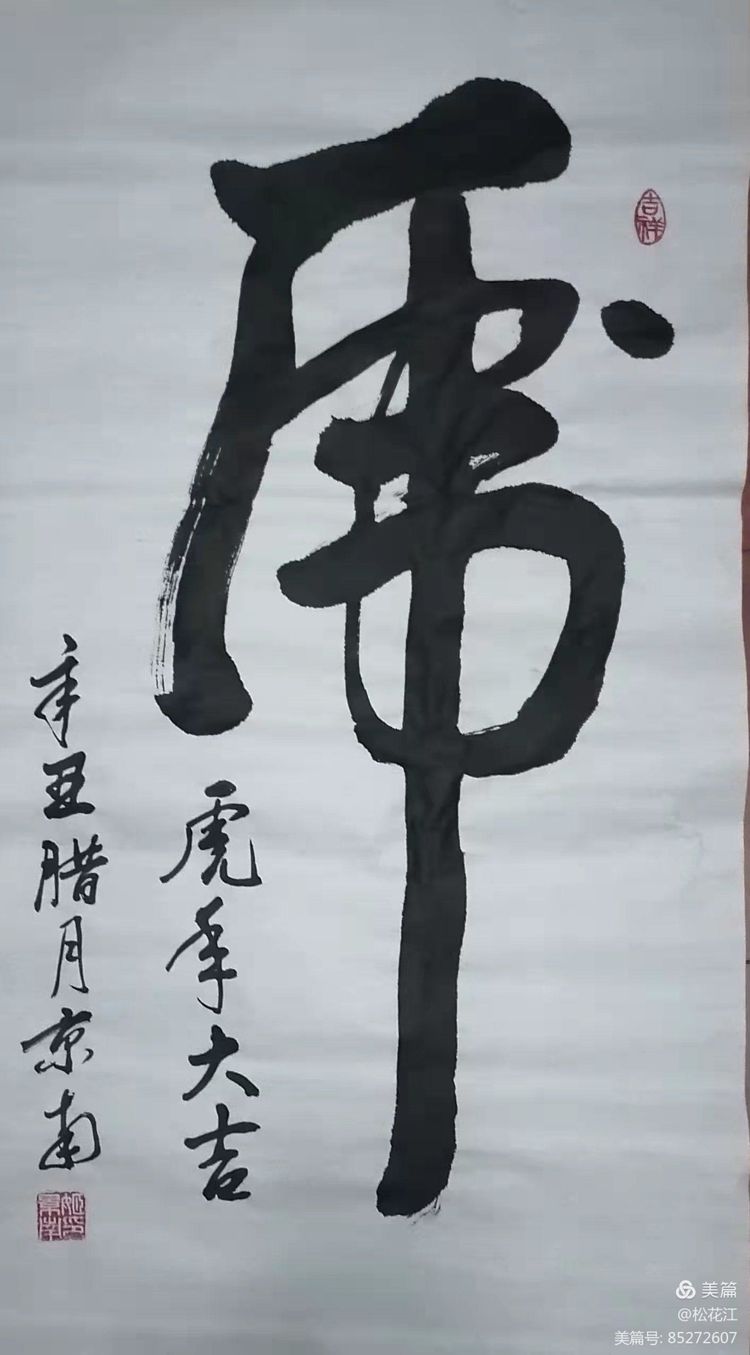 虎
吉祥
虎年大吉
辛丑腊月京南
美篇
@松花江
美篇号: 85272607